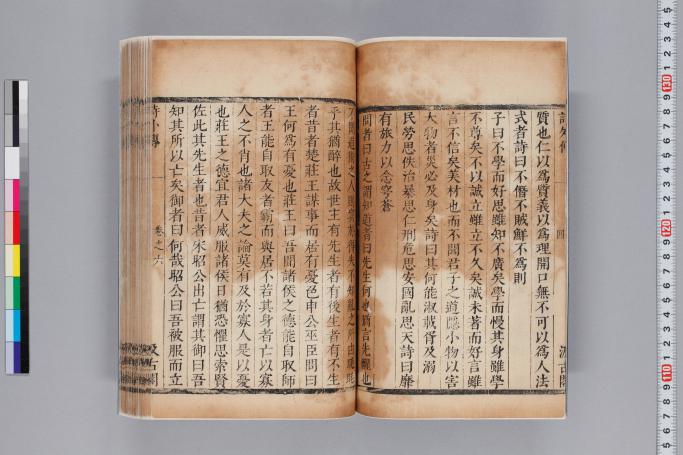 質也仁以爲質義以爲理開口無不可以爲人法
式者詩曰不僭不賊鮮不爲則
子曰不學而好思雖知不廣矣學而慢其身雖學
不尊矣不以誠立雖立不久矣誠未著而好言雖
言不信矣美材也而不聞君子之道隱小物以害
大物者災必及身矣詩曰其何能淑載胥及溺
民勞思佚治暴思仁刑危思安國亂思天詩曰靡
有旅力以念穹蒼
問者曰古之謂知道者曰先生何也猶言先醒也
不聞道術之人則冥於得失不知亂之所由眊眊
乎其猶醉也故世主有先生者有後生者有不生
者昔者楚莊王謀事而居有憂色申公巫臣問曰
王何爲有憂也莊王曰吾聞諸侯之德能自取師
者王能自取友者霸而與居不若其身者亡以寡
人之不肖也諸大夫之論莫有及於寡人是以憂
也莊王之德宜君人威服諸侯日猶恐懼思索賢
佐此其先生者也昔者宋昭公出亡謂其御曰吾
知其所以亡矣御者曰何哉昭公曰吾被服而立
卷之六